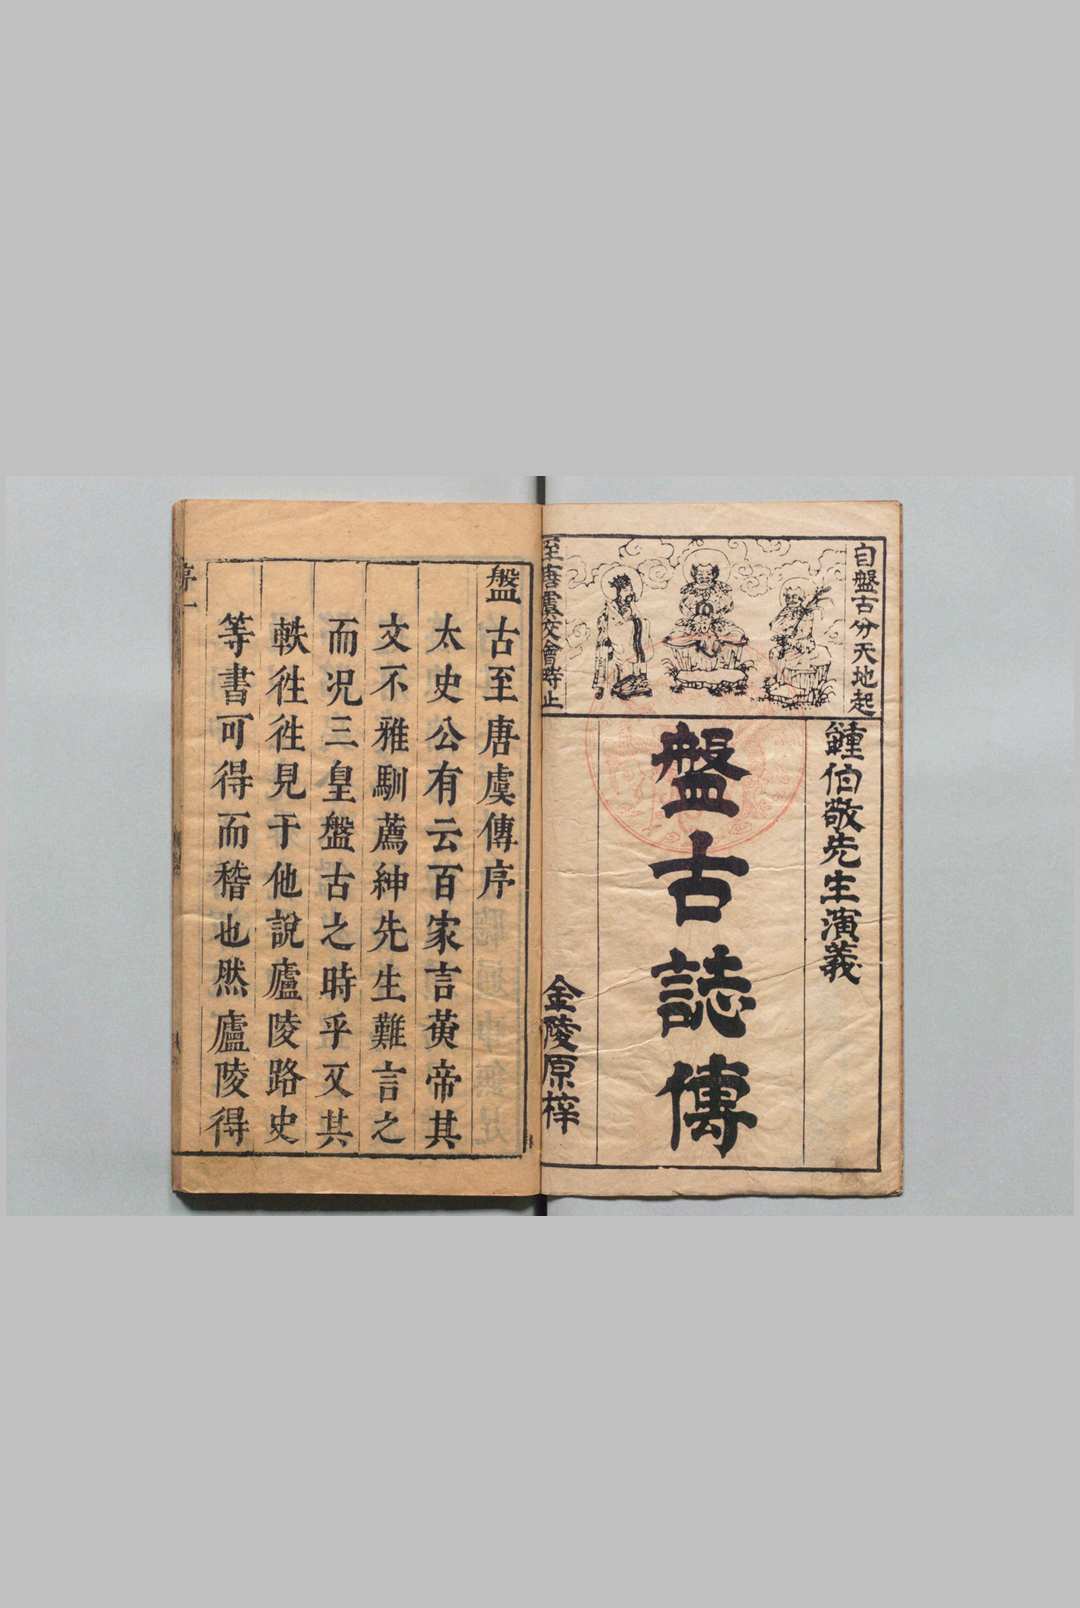 自盤古分天地起
至唐虞交會時止
鍾伯敬先生演義
盤古誌傳
金陵原梓
盤古至唐虞傳序
太史公有云百家言黃帝其
文不雅馴薦紳先生難言之
而况三皇盤古之時乎又其
軼徃徃見于他說廬陵路史
等書可得而稽也然廬陵得
序一